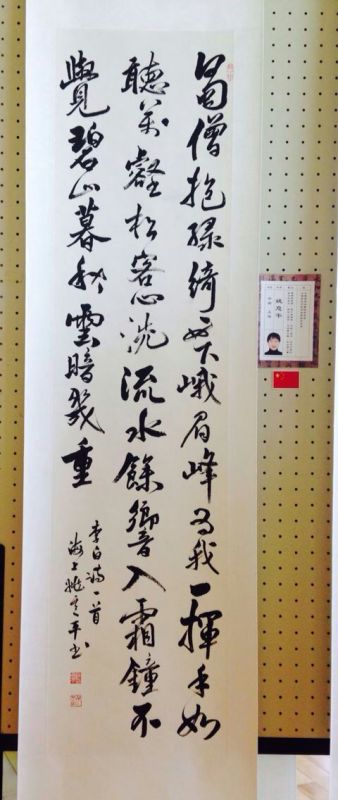 蜀僧抱綠綺西下峨眉峰為我一揮手如
聽萬壑松客心洗流水餘響入霜鐘不
覺碧山暮秋雲暗幾重
李白詩一首
海上姚平书